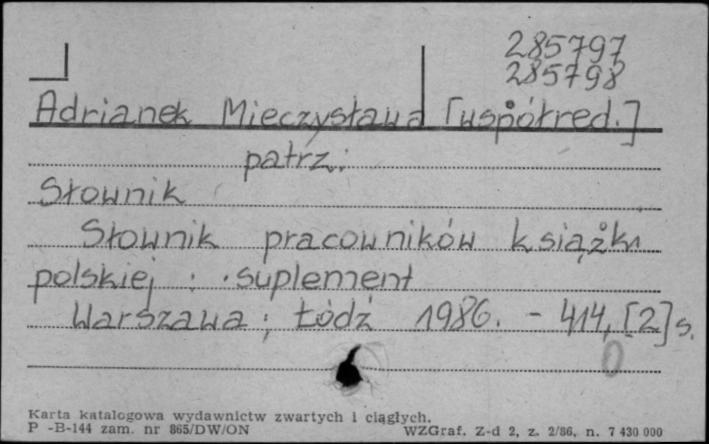 285797
285798
Adrianek Mieczysława [współred.]
patrz:
Słownik
Słownik pracowników książki
polskiej : suplement
Warszawa ; Łódź 1986. - 414, [2] s.
0
Karta katalogowa wydawnictw zwartych i ciągłych.
P -B-144 zam. nr 865/DW/ON WZGraf. Z-d 2, z. 2/86, n. 7 430 000